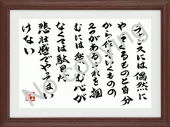 チャンスには偶然に
やってくるものと自分
から作るというものの
2つがあるそれを掴
むには熱い心が
なくては駄目だ
悲壮感でやってはい
けない